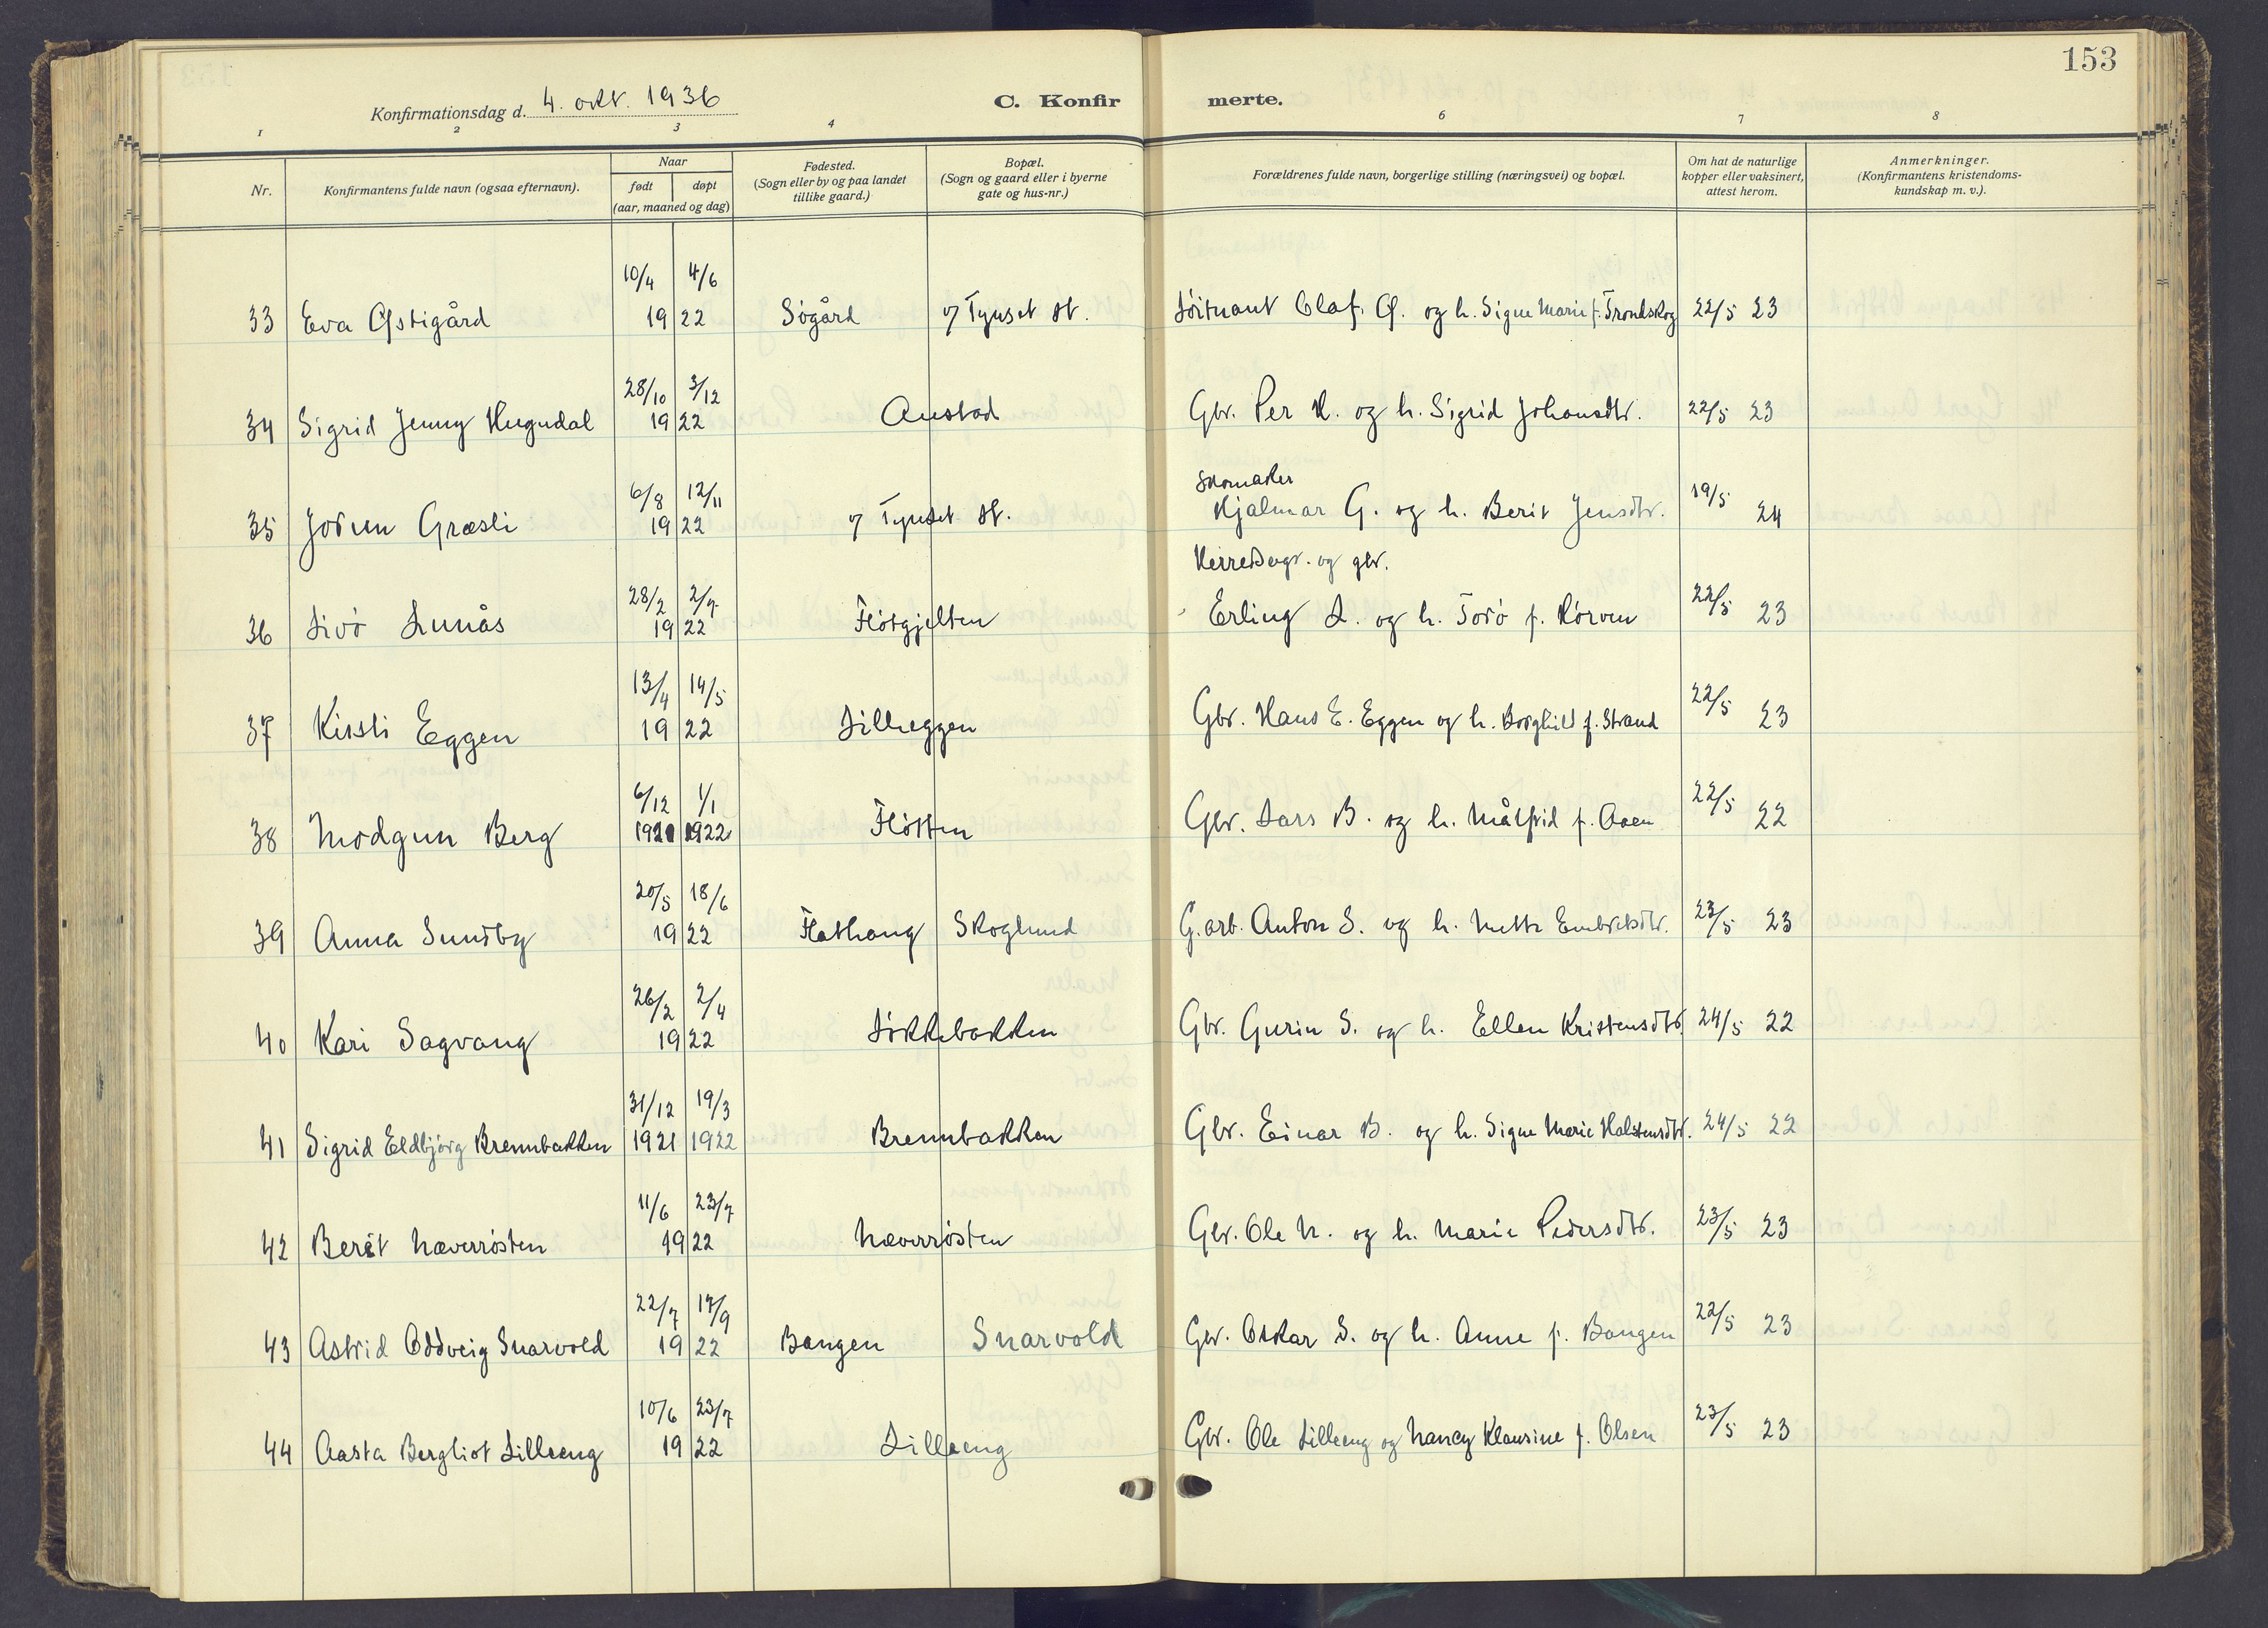 153
Konfirmationsdag d. 4. okt. 1936
C. Konfirmerte.
1 2 3 4 6 7 8
Nr.
Konfirmantens fulde navn (ogsaa efternavn).
Naar
født døpt
(aar, maaned og dag)
Fødested.
(Sogn eller by og paa landet
tillike gaard.)
Bopæl.
(Sogn og gaard eller i byerne
gate og hus-nr.)
Forældrenes fulde navn, borgerlige stilling (næringsvei) og bopæl.
Om hat de naturlige
kopper eller vaksinert,
attest herom.
Anmerkninger.
(Konfirmantens kristendoms-
kundskap m. v.).
10/4 4/6
33 Eva Østigård 19 22 Sögård Tynset st. Löitnant Olaf Ø. og h. Signe Marie f. Trondskog 22/5 23
28/10 3/12
34 Sigrid Jenny Hegndal 19 22 Austad Gbr. Per H. og h. Sigrid Johansdtr. 22/5 23
skomaker
6/8 12/11
35 Jorun Græsli 19 22 Tynset st. Hjalmar G. og h. Berit Jensdtr. 19/5 24
Herredsagr. og gbr.
28/2 2/7
36 Livö Lunås 19 22 Flötgjelten Erling L. og h. Torö f. Rörven 22/5 23
13/4 14/5
37 Kirsti Eggen 19 22 Lilleeggen Gbr. Hans E. Eggen og h. Borghild f. Strand 22/5 23
6/12 1/1
38 Modgun Berg 1921 1922 Flötten Gbr. Lars B. og h. Målfrid f. Aaen 22/5 22
20/5 18/6
39 Anna Sundby 19 22 Flathaug Skoglund G.arb. Anton S. og h. Mette Embretsdtr. 23/5 23
26/2 2/4
40 Kari Sagvang 19 22 Lökkebakken Gbr. Gurin S. og h. Ellen Kristensdtr. 24/5 22
31/12 19/3
41 Sigrid Eldbjörg Brennbakken 1921 1922 Brennbakken Gbr. Einar B. og h. Signe Marie Halstensdtr. 24/5 22
11/6 23/7
42 Berit Næverrösten 19 22 Næverrösten Gbr. Ole N. og h. Marie Pedersdtr. 23/5 23
22/7 17/9
43 Astrid Oddveig Snarvold 19 22 Bangen Snarvold Gbr. Oskar S. og h. Anne f. Bangen 22/5 23
10/6 23/7
44 Aasta Bergliot Lilleeng 19 22 Lilleeng Gbr. Ole Lilleeng og Nancy Klausine f. Olsen 23/5 23